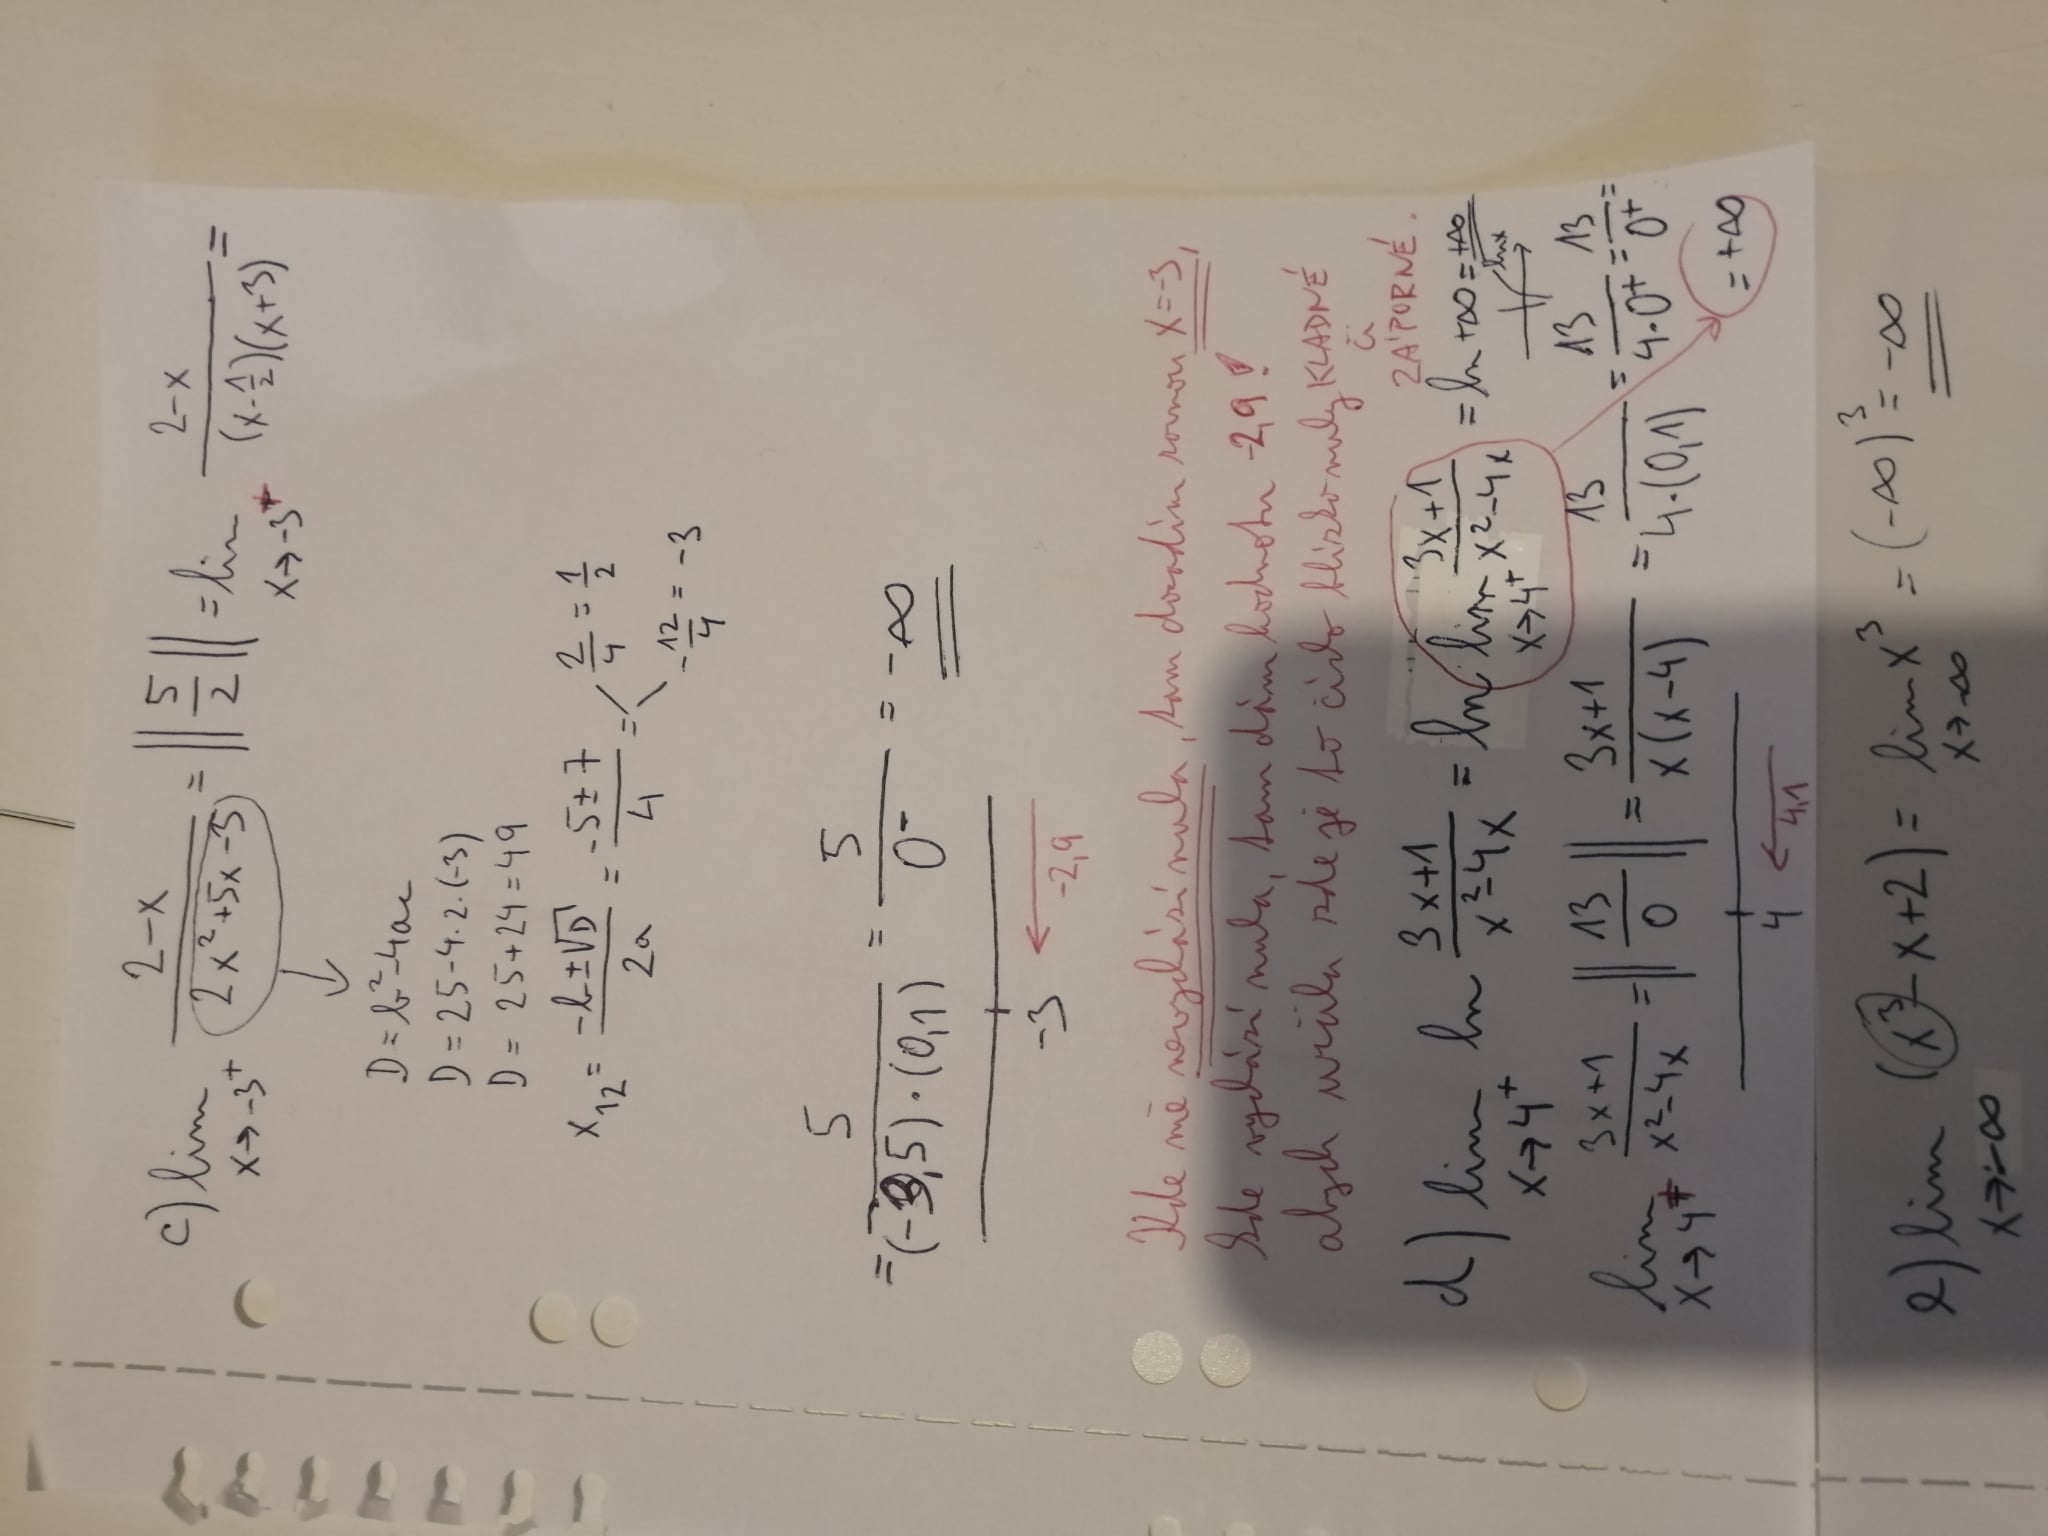 c) lim x→-3⁺ (2-x)/(2x²+5x-3) = ‖5/2‖ = lim x→-3⁺ (2-x)/((x-½)(x+3)) =
D = b²-4ac
D = 25-4.2.(-3)
D = 25+24 = 49
x₁₂ = (-b±√D)/2a = (-5±7)/4 = 2/4 = 1/2
-12/4 = -3
= 5/((-3,5)·(0,1)) = 5/0⁻ = -∞
-3 ← -2,9
Kde mě nevychází nula, tam dosadím rovnou x=-3,
kde vychází nula, tam dám hodnotu -2,9!
abych viděla zde je to číslo blízko nuly KLADNÉ
či
ZÁPORNÉ.
d) lim x→4⁺ ln (3x+1)/(x²-4x) = ln lim x→4⁺ (3x+1)/(x²-4x) = ln +∞ = +∞
lnx
lim x→4⁺ (3x+1)/(x²-4x) = ‖13/0‖ = (3x+1)/(x(x-4)) = 13/(4·(0,1)) = 13/(4·0⁺) = 13/0⁺ =
= +∞
4 ← 4,1
e) lim x→-∞ (x³-x+2) = lim x→-∞ x³ = (-∞)³ = -∞